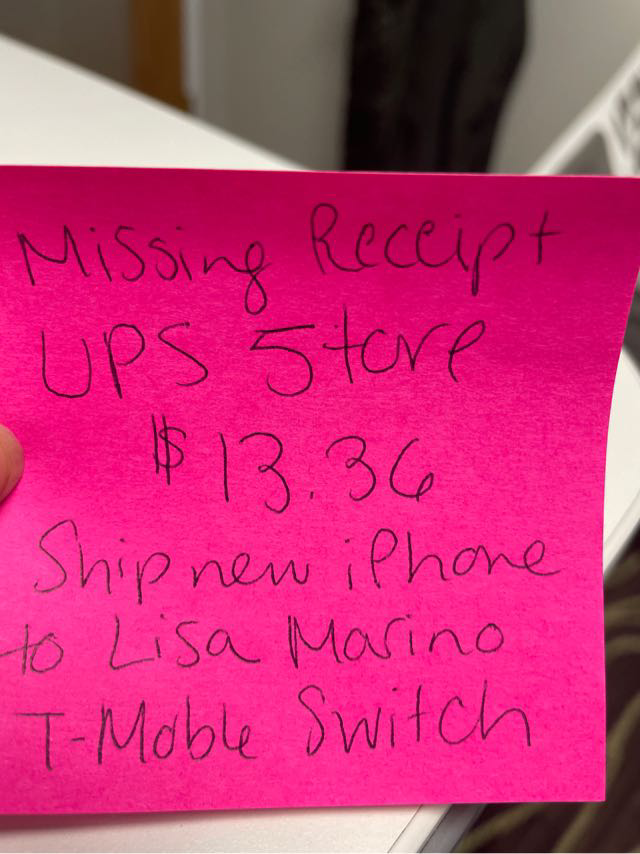 Missing Receipt
UPS Store
$13.36
Ship new iPhone
to Lisa Marino
T-Moble Switch